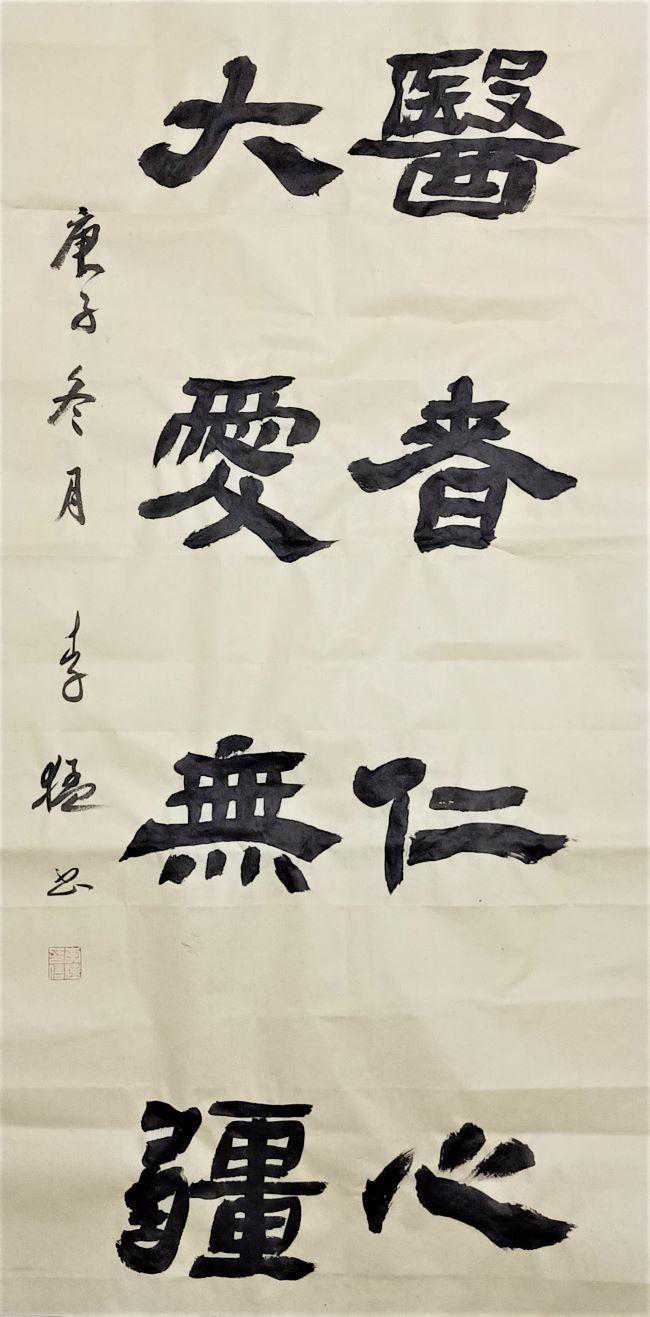 醫者仁心
大愛無疆
庚子冬月 李猛书